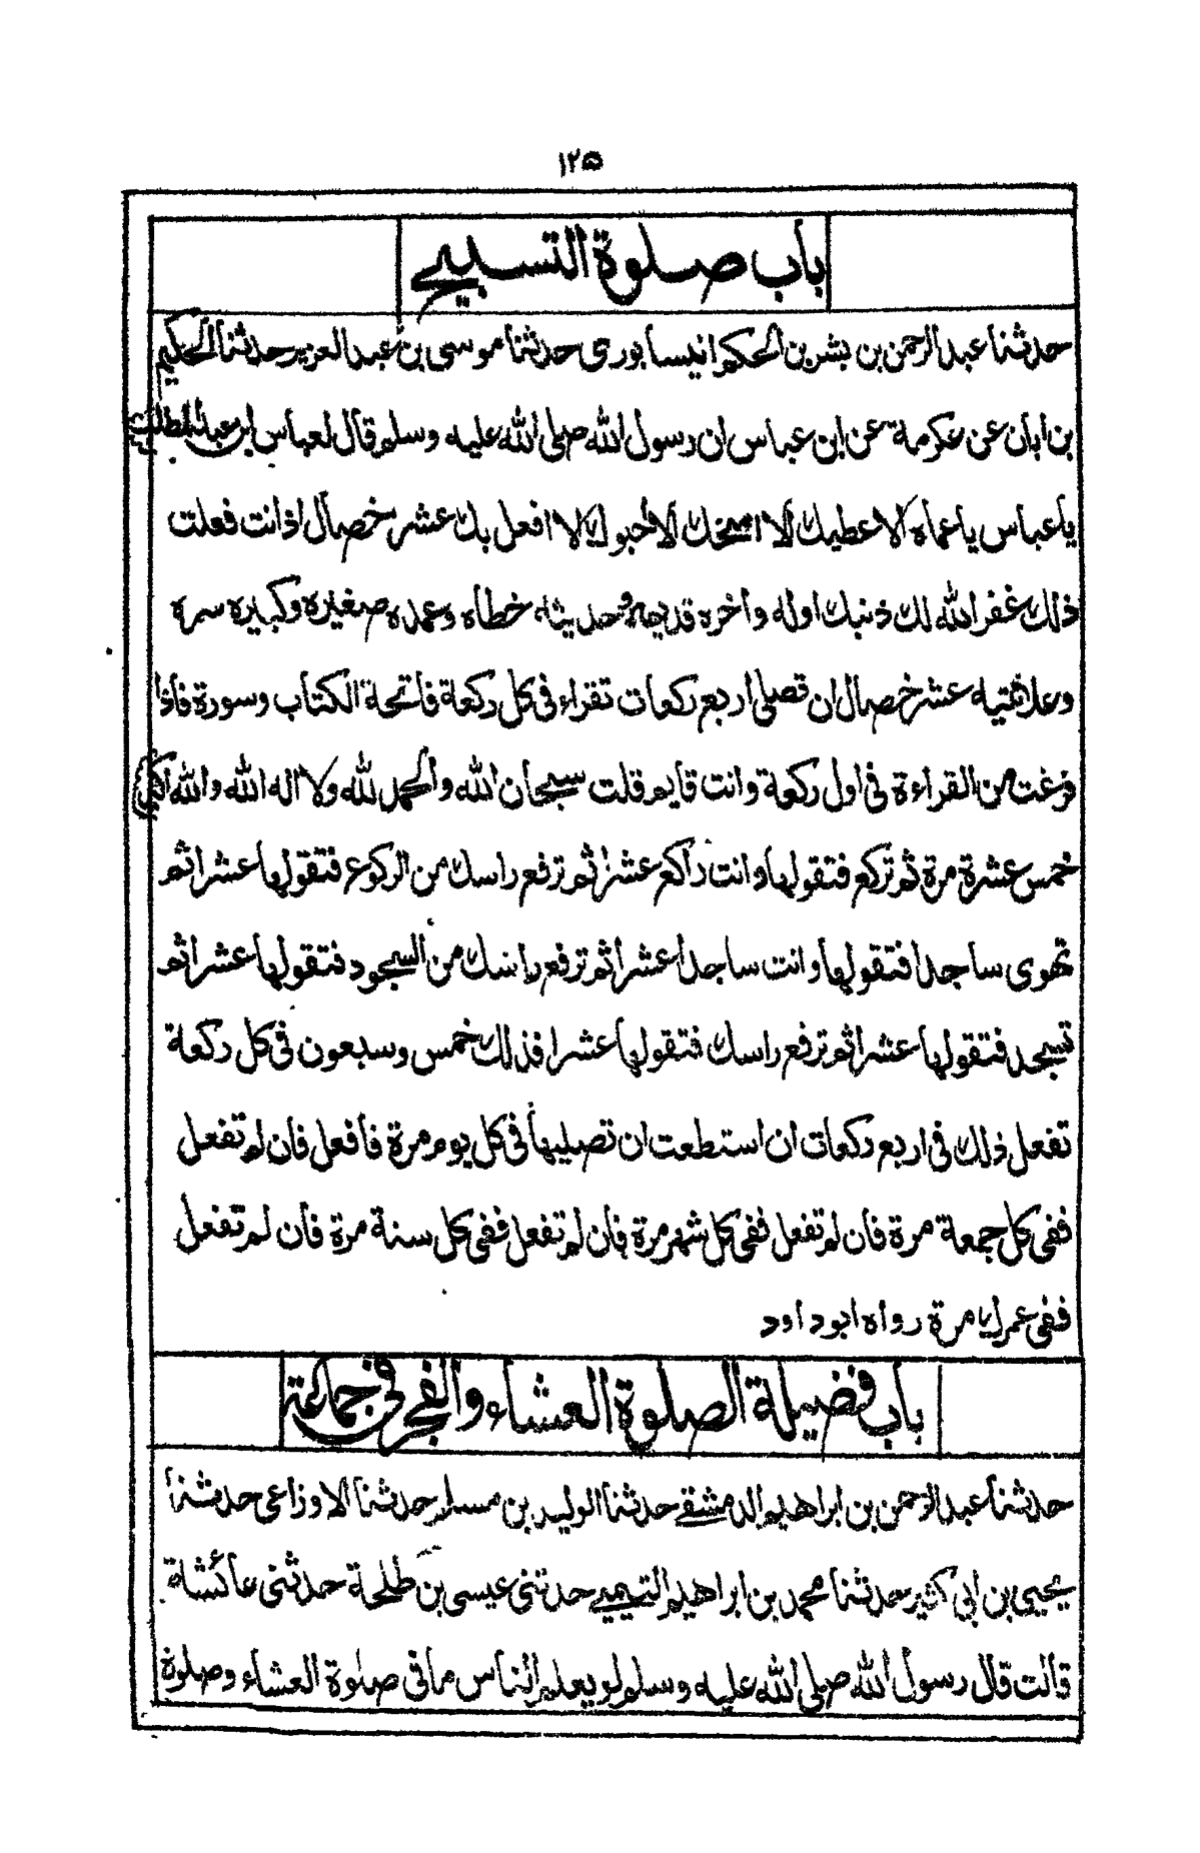 ۱۲۵
باب صلوة التسبيح
حدثنا عبد الرحمن بن بشر بن الحكم انيسابورى حدثنا موسى بن عبد العزيز حدثنا الحكيم
بن ابان عن عكرمة عن ابن عباس ان رسول الله صلى الله عليه وسلم قال لعباس ابن عبد المطلب
يا عباس يا عماه الا اعطيك الا امنحك الا احبوك الا افعل بك عشر خصال اذا انت فعلت
ذلك غفر الله لك ذنبك اوله واخره قديمه وحديثه خطأه وعمده صغيره وكبيره سره
وعلانيته عشر خصال ان تصلى اربع ركعات تقراء فى كل ركعة فاتحة الكتاب وسورة فاذا
فرغت من القراءة فى اول ركعة وانت قايم قلت سبحان الله والحمد لله ولا اله الا الله والله اكبر
خمس عشرة مرة ثم تركع فتقولها وانت راكع عشرا ثم ترفع راسك من الركوع فتقولها عشرا ثم
تهوى ساجدا فتقولها وانت ساجدا عشرا ثم ترفع راسك من السجود فتقولها عشرا ثم
تسجد فتقولها عشرا ثم ترفع راسك فتقولها عشرا فذلك خمس وسبعون فى كل ركعة
تفعل ذلك فى اربع ركعات ان استطعت ان تصليها فى كل يوم مرة فافعل فان لم تفعل
ففى كل جمعة مرة فان لم تفعل ففى كل شهر مرة فان لم تفعل ففى كل سنة مرة فان لم تفعل
ففى عمرك مرة رواه ابو داود
باب فضيلة الصلوة العشاء والفجر فى جماعة
حدثنا عبد الرحمن بن ابراهيم الدمشقى حدثنا الوليد بن مسلم حدثنا الاوزاعى حدثنا
يحيى بن ابى كثير حدثنا محمد بن ابراهيم التيمى حدثنى عيسى بن طلحة حدثنى عائشة
قالت قال رسول الله صلى الله عليه وسلم لو يعلم الناس ما فى صلوة العشاء وصلوة